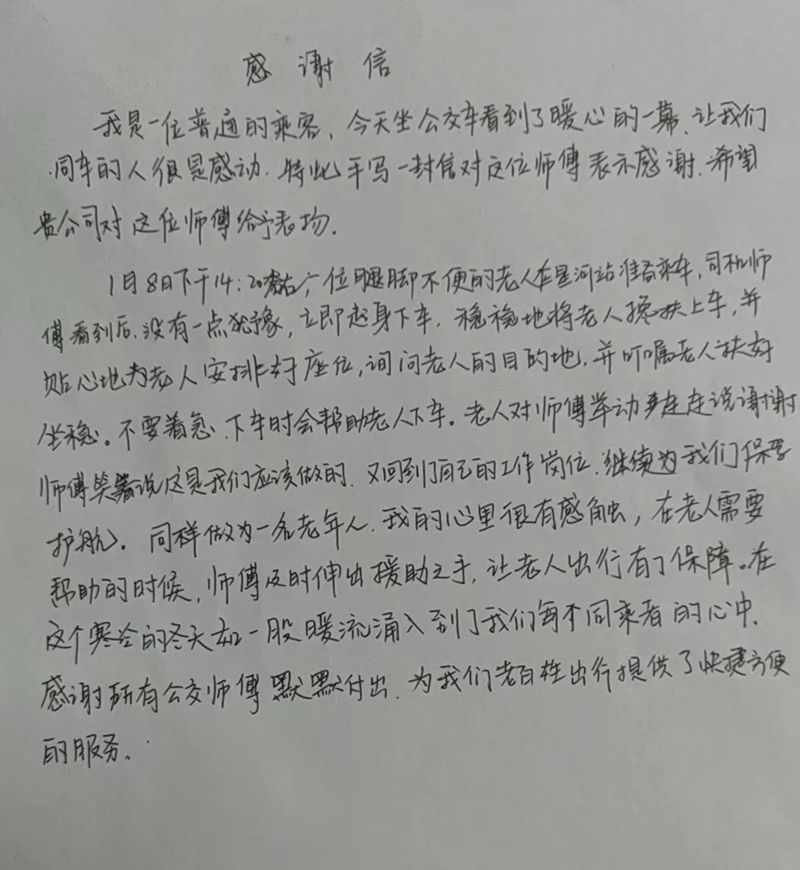 感谢信
我是一位普通的乘客，今天坐公交车看到了暖心的一幕、让我们
同车的人很是感动．特此手写一封信对这位师傅表示感谢．希望
贵公司对这位师傅给予表扬．
1月8日下午14:20左右，一位腿脚不便的老人在星河站准备乘车，司机师
傅看到后．没有一点犹豫，立即起身下车．稳稳地将老人搀扶上车，并
贴心地为老人安排好座位，询问老人的目的地．并叮嘱老人扶好
坐稳。不要着急．下车时会帮助老人下车。老人对师傅举动连连说谢谢
师傅笑着说这是我们应该做的．又回到了自己的工作岗位．继续为我们保驾
护航。同样做为一名老年人．我的心里很有感触，在老人需要
帮助的时候，师傅及时伸出援助之手，让老人出行有了保障。在
这个寒冷的冬天如一股暖流涌入到了我们每个同乘者的心中．
感谢所有公交师傅默默付出．为我们老百姓出行提供了快捷方便
的服务．